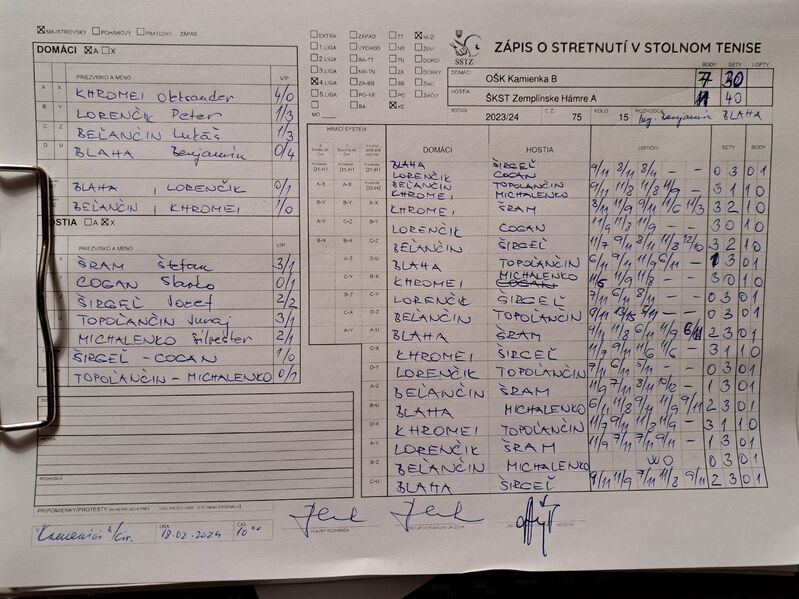 MAJSTROVSKÝ POHÁROVÝ PRIATEĽSKÝ ZÁPAS
EXTRA ZÁPAD TT MUŽI
1.LIGA VÝCHOD NR ŽENY
2.LIGA BA-TT TN DORCI
3.LIGA NR-TN ZA DORKY
4.LIGA ZA-BB BB ŽIACI
5.LIGA PO-KE PO ŽIAČKY
BA KE
SSTZ
ZÁPIS O STRETNUTÍ V STOLNOM TENISE
BODY SETY LOPTY
DOMÁCI OŠK Kamienka B 7 30
HOSTIA ŠKST Zemplínske Hámre A 11 40
ROČNÍK 2023/24 Č.Z. 75 KOLO 15 ROZHODCA Ing. Benjamín BLAHA
DOMÁCI A X
PRIEZVISKO A MENO V/P
A X KHROMEI Olexander 4/0
B Y LORENČÍK Peter 1/3
C Z BEĽANČIN Lukáš 1/3
D U BLAHA Benjamín 0/4
BLAHA , LORENČÍK 0/1
BEĽANČIN , KHROMEI 1/0
HOSTIA A X
PRIEZVISKO A MENO V/P
ŠRAM Štefan 3/1
COGAN Slavko 0/1
ŠIRGEĽ Jozef 2/2
TOPOĽANČIN Juraj 3/1
MICHALENKO Silvester 2/1
ŠIRGEĽ - COGAN 1/0
TOPOĽANČIN - MICHALENKO 0/1
HRACÍ SYSTÉM DOMÁCI HOSTIA LOPTIČKY SETY BODY
BLAHA LORENČÍK ŠIRGEĽ COGAN 9/11 8/11 8/11 - - 0 3 0 1
BEĽANČIN KHROMEI TOPOĽANČIN MICHALENKO 3 1 1 0
KHROMEI ŠRAM 8/11 11/9 9/11 11/6 11/3 3 2 1 0
LORENČÍK COGAN 11/9 11/8 11/9 - - 3 0 1 0
BEĽANČIN ŠIRGEĽ 11/7 9/11 8/11 11/8 12/10 3 2 1 0
BLAHA TOPOĽANČIN 6/11 9/11 11/9 6/11 - 1 3 0 1
KHROMEI MICHALENKO 11/6 11/9 11/8 - - 3 0 1 0
LORENČÍK ŠIRGEĽ 7/11 6/11 8/11 - - 0 3 0 1
BEĽANČIN TOPOĽANČIN 0 3 0 1
BLAHA ŠRAM 9/11 11/8 6/11 11/9 6/11 2 3 0 1
KHROMEI ŠIRGEĽ 11/7 9/11 11/6 11/6 - 3 1 1 0
LORENČÍK TOPOĽANČIN 7/11 6/11 5/11 - - 0 3 0 1
BEĽANČIN ŠRAM 11/9 7/11 8/11 10/12 - 1 3 0 1
BLAHA MICHALENKO 6/11 11/8 9/11 11/9 9/11 2 3 0 1
KHROMEI TOPOĽANČIN 11/7 9/11 11/8 11/9 - 3 1 1 0
LORENČÍK ŠRAM 11/9 7/11 7/11 9/11 - 1 3 0 1
BEĽANČIN MICHALENKO WO 0 3 0 1
BLAHA ŠIRGEĽ 9/11 11/9 7/11 11/8 9/11 2 3 0 1
ROZHODCA
PRIPOMIENKY/PROTESTY
DŇA 18-02-2024 ČAS 10:00
HLAVNÝ ROZHODCA